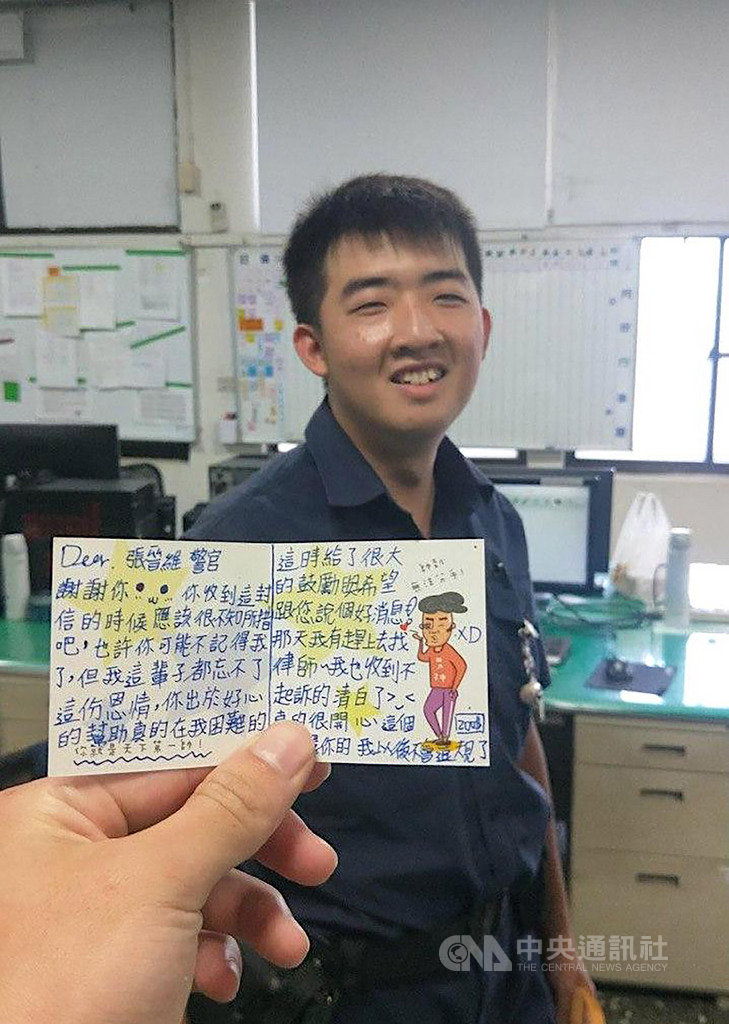 Dear. 張晉維 警官
謝謝你 你收到這封
信的時候應該很不知所措
吧,也許你可能不記得我
了,但我這輩子都忘不了
這份恩情,你出於好心
的幫助真的在我困難的
你就是天下第一帥!
這時給了很大
的鼓勵與希望
跟您說個好消息
那天我有趕上去找
律師~我也收到不
起訴的清白了>_<
真的很開心 這個
你的 我以後不會違規了
帥到
XD
中央通訊社
THE CENTRAL NEWS AGENCY